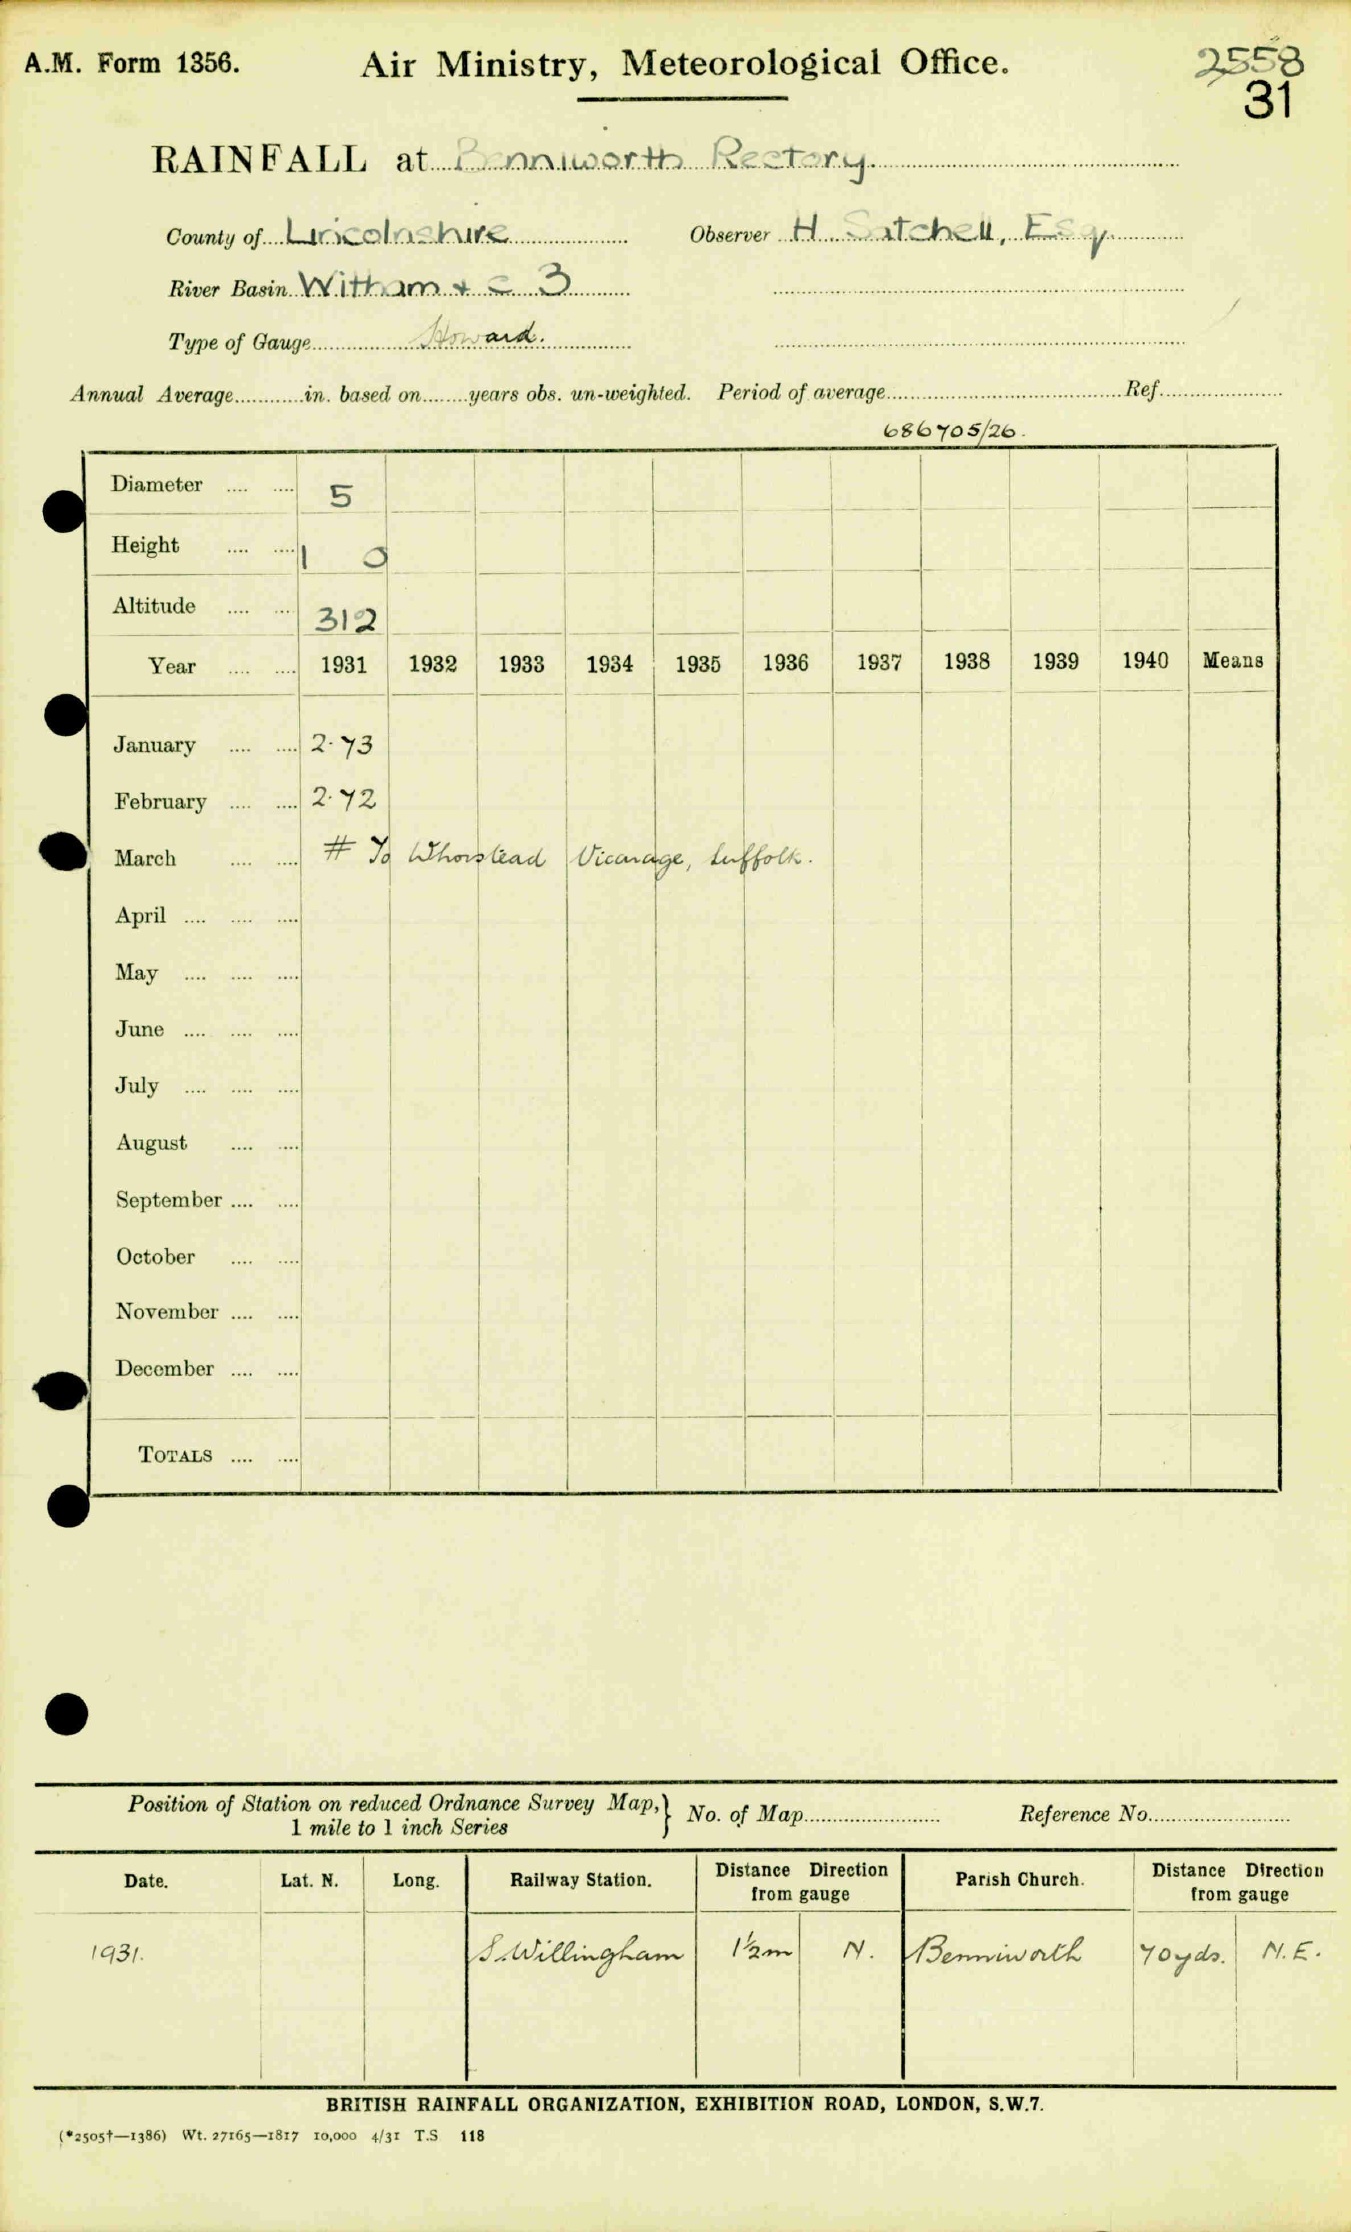 A.M. Form 1356.
Air Ministry, Meteorological Office.
2558
31
RAINFALL at Benniworth Rectory.
County of Lincolnshire Observer H Satchell, Esq.
River Basin Witham + c 3
Type of Gauge Howard.
Annual Average............in. based on........years obs. un-weighted. Period of average........................................Ref.....................
686705/26.
Diameter .... .... 5
Height .... .... 1 0
Altitude .... .... 312
Year .... .... 1931 1932 1933 1934 1935 1936 1937 1938 1939 1940 Means
January .... .... 2.73
February .... .... 2.72
March .... .... # To Whorstead Vicarage, Suffolk.
April .... .... ....
May .... .... ....
June .... .... ....
July .... .... ....
August .... ....
September .... ....
October .... ....
November .... ....
December .... ....
TOTALS .... ....
Position of Station on reduced Ordnance Survey Map,} No. of Map........................ Reference No.........................
1 mile to 1 inch Series
Date. Lat. N. Long. Railway Station. Distance Direction from gauge Parish Church. Distance Direction from gauge
1931. S. Willingham 1½m N. Benniworth 70yds. N.E.
BRITISH RAINFALL ORGANIZATION, EXHIBITION ROAD, LONDON, S.W.7.
(*2505†—1386) Wt. 27165—1817 10,000 4/31 T.S 118